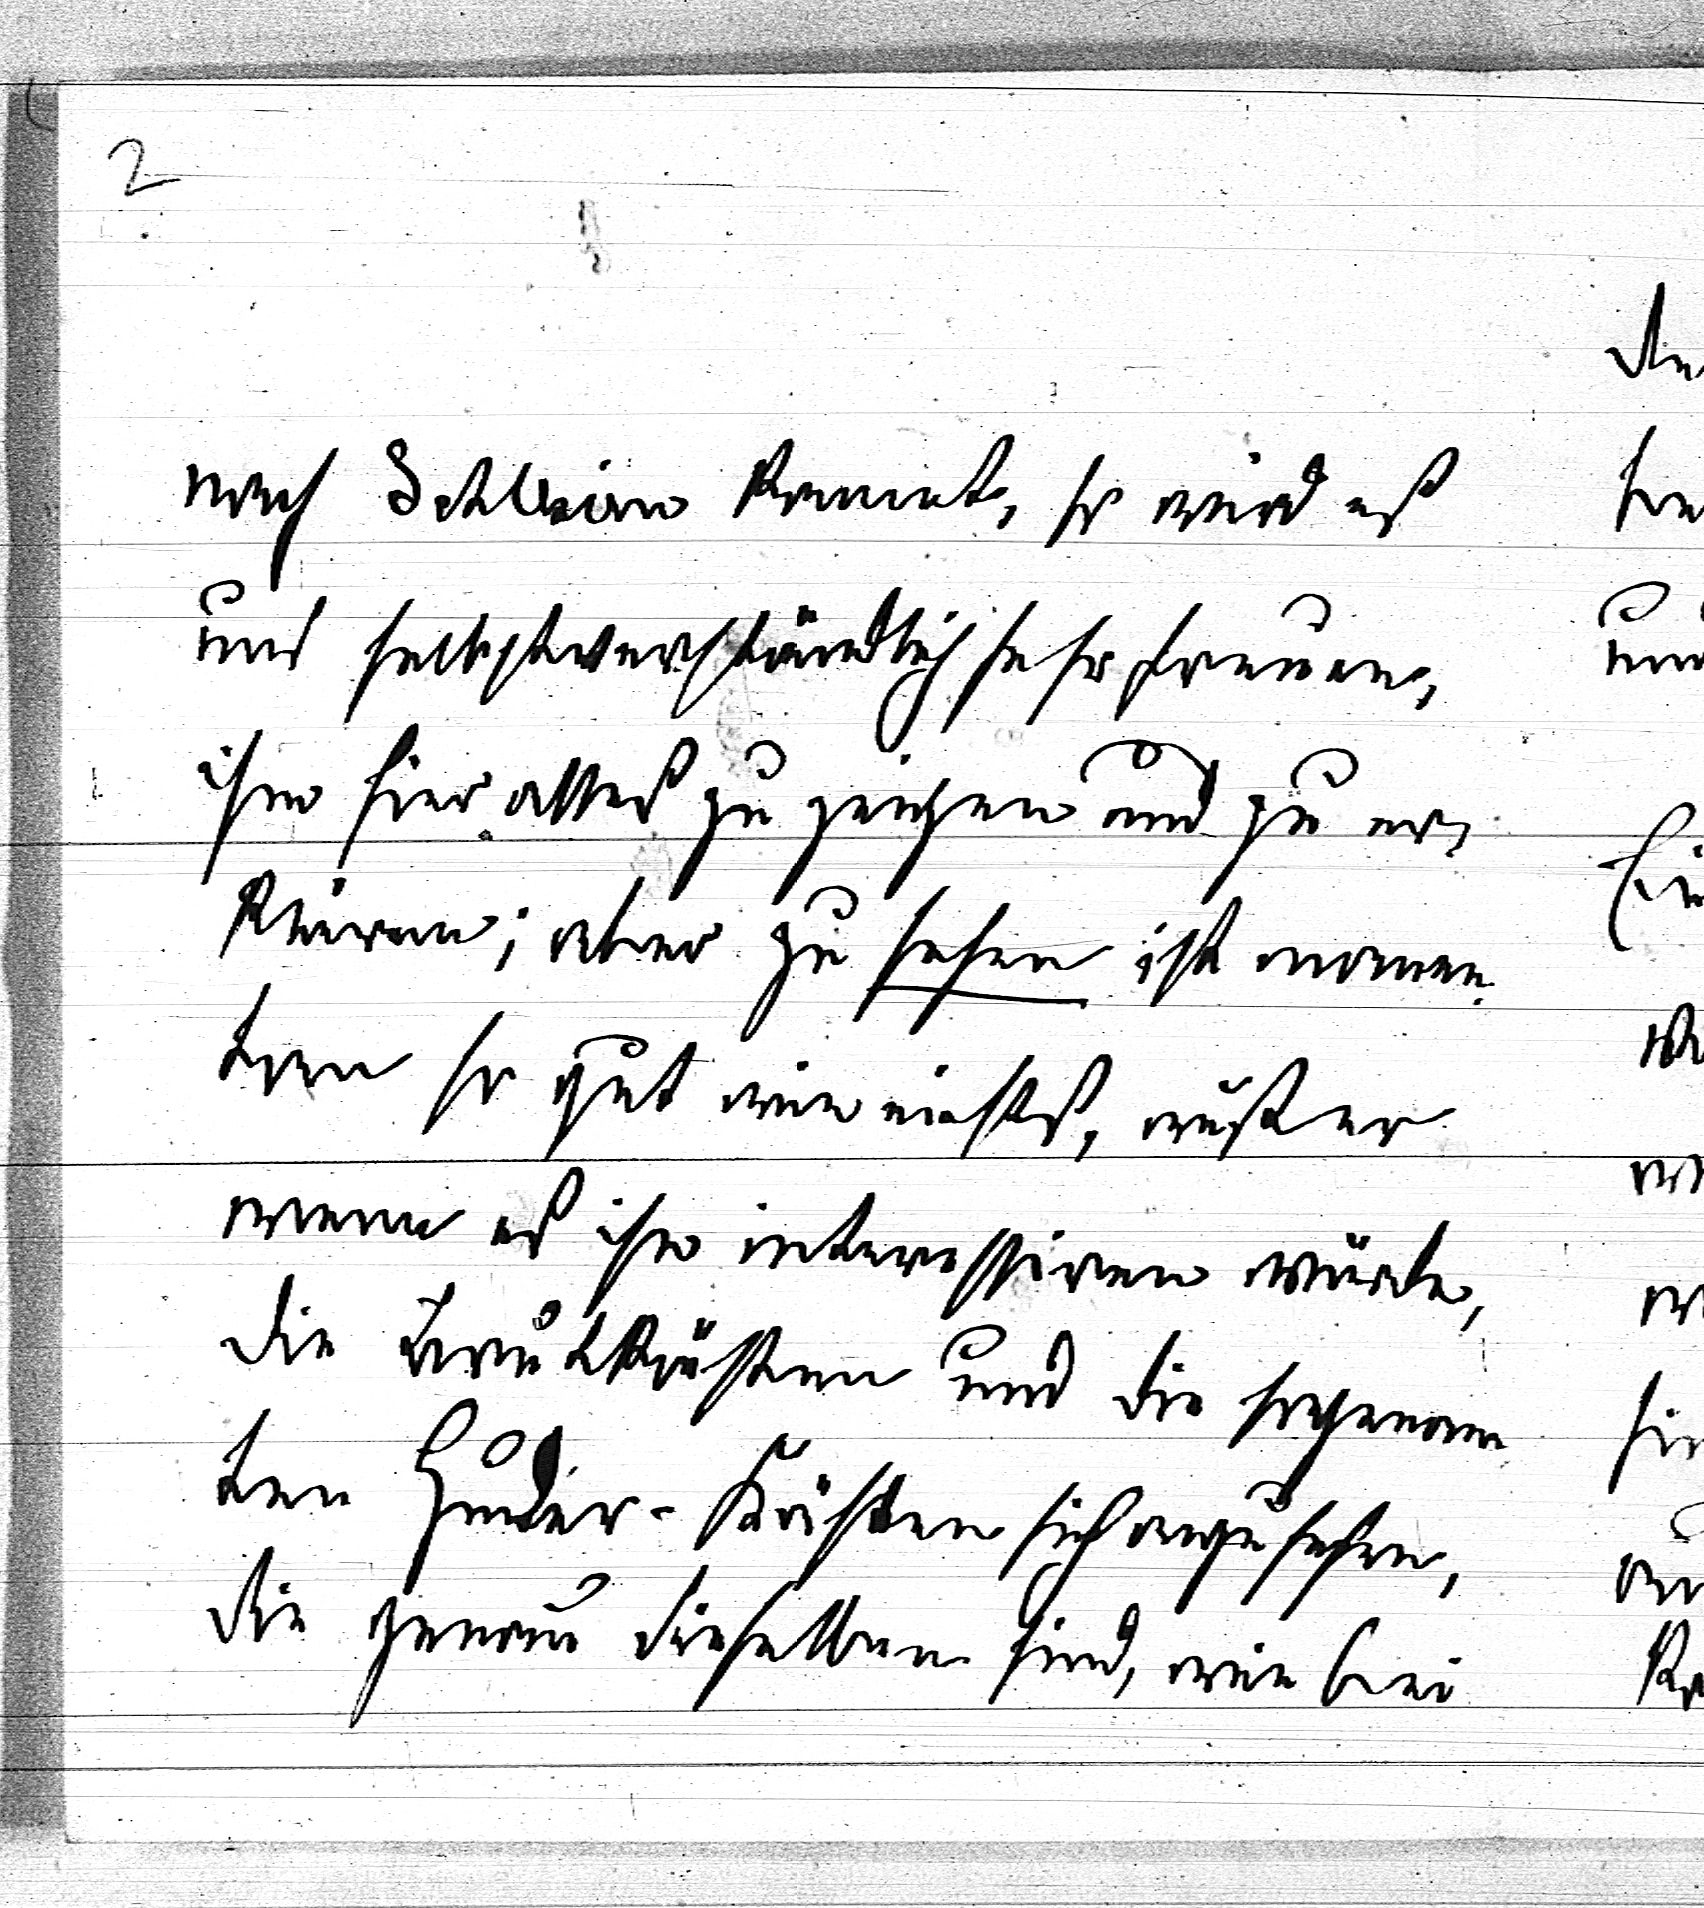 2
nach Schleim kommt, so wird es
uns selbstverständlich sehr freuen,
ihm hier alles zu zeigen und zu er-
klären; aber zu sehen ist momen-
tan so gut wie nichts, außer
wenn es ihn interessiren würde,
die Brutkästen und die sogenann
ten Zuber-Kästen sich anzusehen,
die genau dieselben sind, wie bei